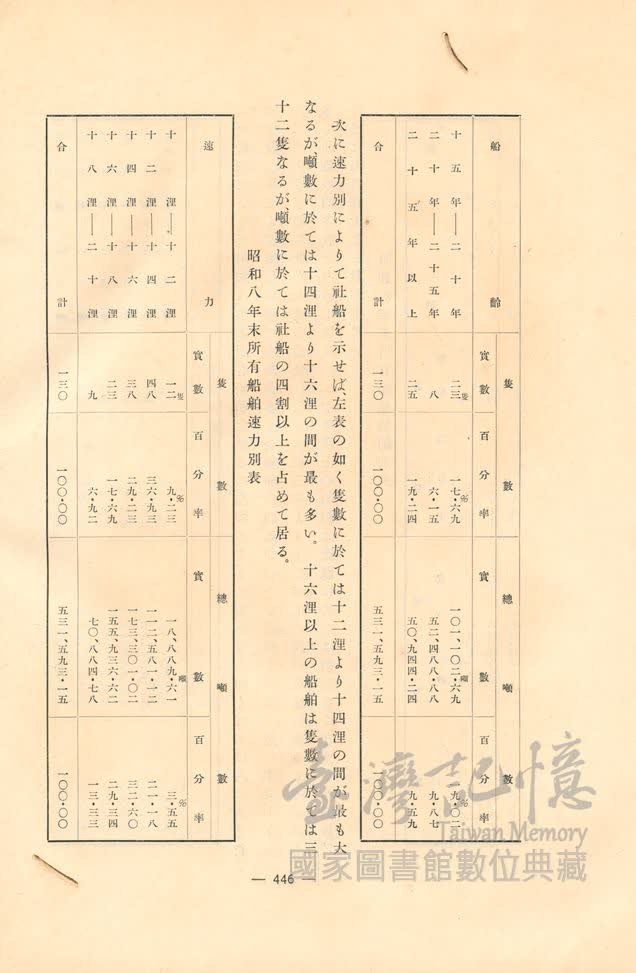 船齡 隻數 總噸數
實數 百分率 實數 百分率
十五年——二十年 二三隻 一七・六九% 一〇一、一〇二・六九噸 一九・〇二%
二十年——二十五年 八 六・一五 五二、四八八・八八 九・八七
二十五年以上 二五 一九・二四 五〇、九四四・二四 九・五九
合計 一三〇 一〇〇・〇〇 五三一、五九三・一五 一〇〇・〇〇
次に速力別によりて社船を示せば、左表の如く隻數に於ては十二浬より十四浬の間が最も大
なるが、噸數に於ては十四浬より十六浬の間が最も多い。十六浬以上の船舶は隻數に於ては三
十二隻なるが、噸數に於ては社船の四割以上を占めて居る。
昭和八年末所有船舶速力別表
速力 隻數 總噸數
實數 百分率 實數 百分率
十浬——十二浬 一二隻 九・二三% 一八、八八九・六一噸 三・五五%
十二浬——十四浬 四八 三六・九三 一一二、五八一・一二 二一・一八
十四浬——十六浬 三八 二九・二三 一七三、三〇一・〇二 三二・六〇
十六浬——十八浬 二三 一七・六九 一五五、九三六・六二 二九・三四
十八浬——二十浬 九 六・九二 七〇、八八四・七八 一三・三三
合計 一三〇 一〇〇・〇〇 五三一、五九三・一五 一〇〇・〇〇
— 446 —
臺灣記憶
Taiwan Memory
國家圖書館數位典藏